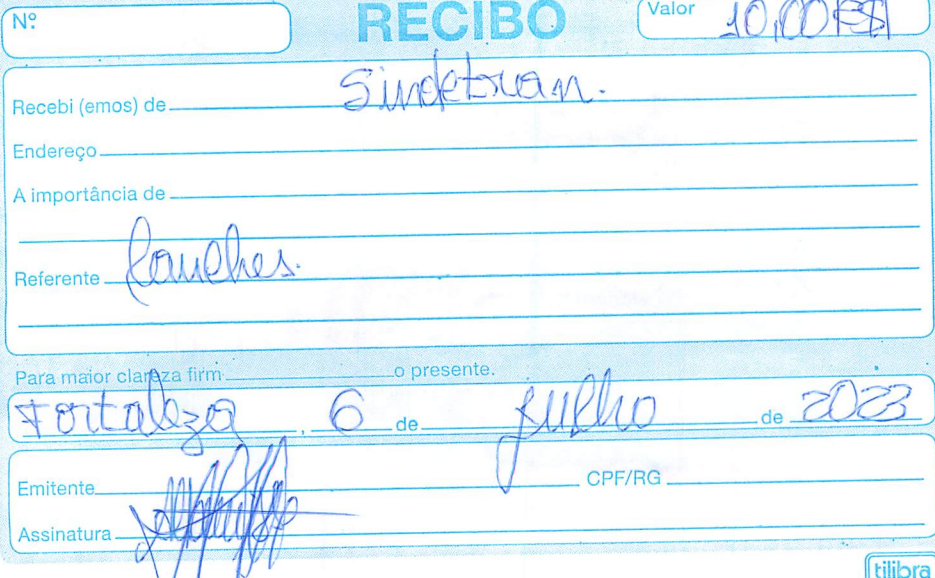 Nº
RECIBO
Valor 10,00 R$
Recebi (emos) de Sindetran.
Endereço
A importância de
Referente Lanches.
Para maior clareza firm o presente.
Fortaleza, 6 de julho de 2023
Emitente CPF/RG
Assinatura
tilibra